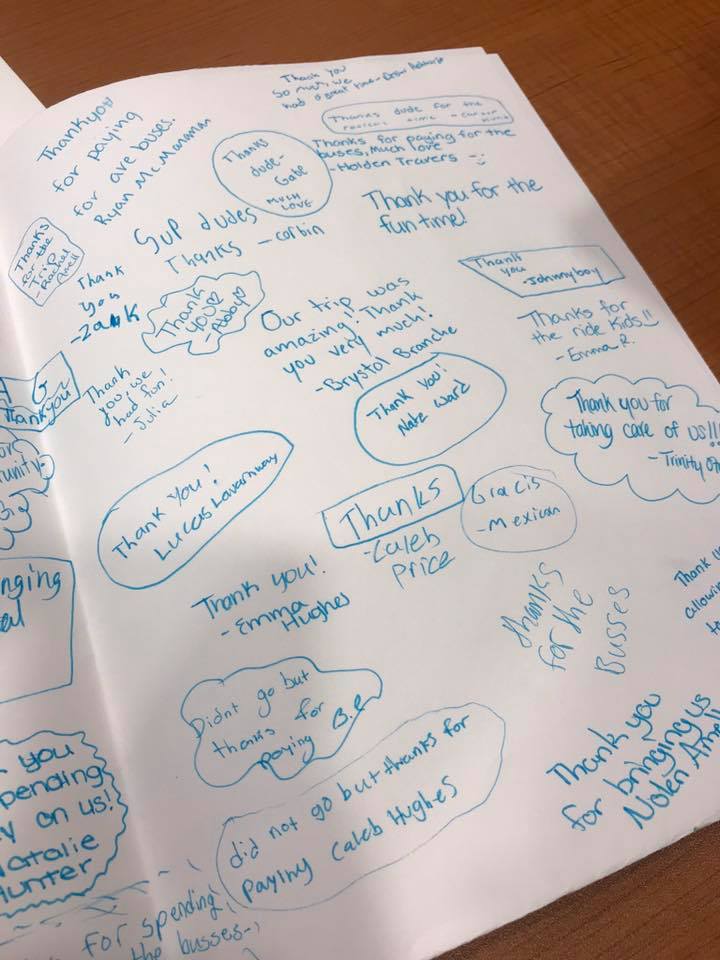 Thankyou
for paying
for are buses.
Ryan McManaman
Thank you
so much, we
had a great time-
Thanks dude for the
time -
Thanks for paying for the
buses, Much love
-Holden Travers -:)
Thanks
dude-
Gabe
MUCH
LOVE
Thank you for the
fun time!
Sup dudes
Thanks -corbin
Thanks
for the
Trip
-Rachel
Amell
Thank
you
-Zack
Thank
you♡
-Abby♡
Our trip was
amazing! Thank
you very much!
-Brystol Branche
Thank
you -Johnnyboy
Thanks for
the ride Kids!!
-Emma R.
A G
Thankyou
Thank
you, we
had fun!
-Julia
Thank you!
Nate Ward
Thank you for
taking care of us!!!
-Trinity
Thank You!
Lucas
Thanks
-Caleb
Price
Gracis
-Mexican
Thank you!
-Emma
Hughes
thanks
for the
Busses
Thank
allowing
to
nging
Didnt go but
thanks for
paying B.P
did not go but thanks for
paying Caleb Hughes
Thank you
for bringing us
Nolen Amell
you
pending
y on us!
Natalie
Hunter
for spending
the busses-